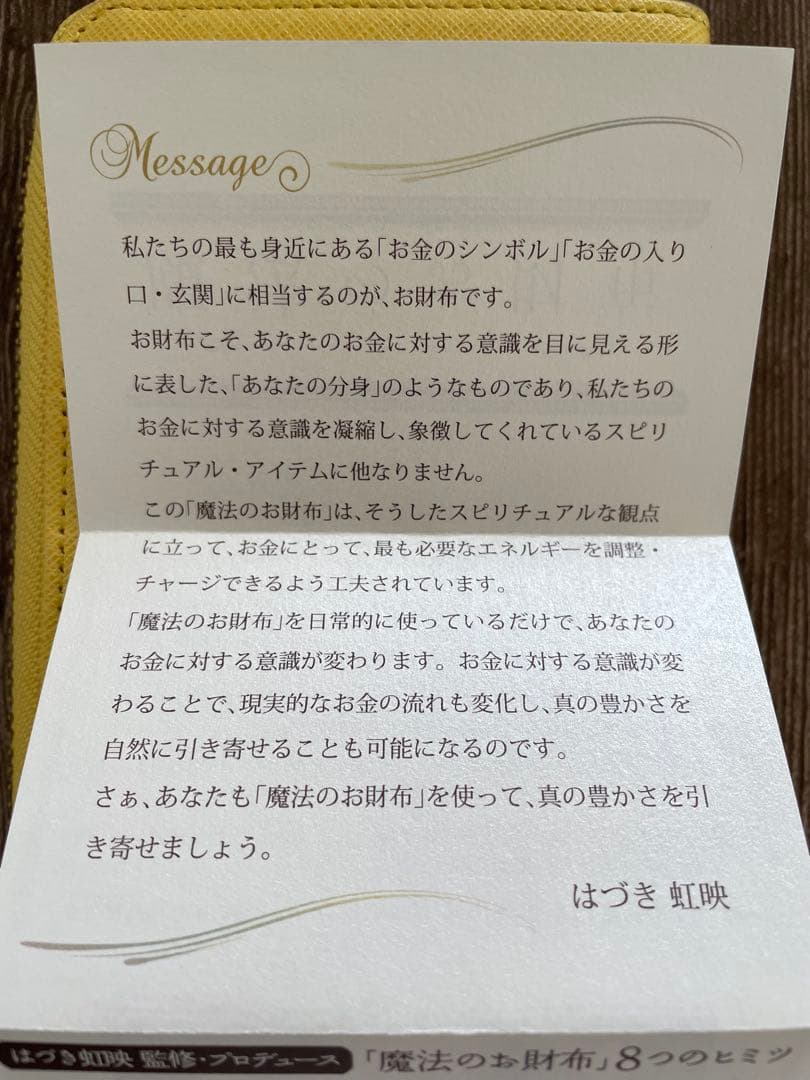 Message
私たちの最も身近にある「お金のシンボル」「お金の入り
口・玄関」に相当するのが、お財布です。
お財布こそ、あなたのお金に対する意識を目に見える形
に表した、「あなたの分身」のようなものであり、私たちの
お金に対する意識を凝縮し、象徴してくれているスピリ
チュアル・アイテムに他なりません。
この「魔法のお財布」は、そうしたスピリチュアルな観点
に立って、お金にとって、最も必要なエネルギーを調整・
チャージできるよう工夫されています。
「魔法のお財布」を日常的に使っているだけで、あなたの
お金に対する意識が変わります。お金に対する意識が変
わることで、現実的なお金の流れも変化し、真の豊かさを
自然に引き寄せることも可能になるのです。
さぁ、あなたも「魔法のお財布」を使って、真の豊かさを引
き寄せましょう。
はづき 虹映
はづき虹映 監修・プロデュース 「魔法のお財布」8つのヒミツ